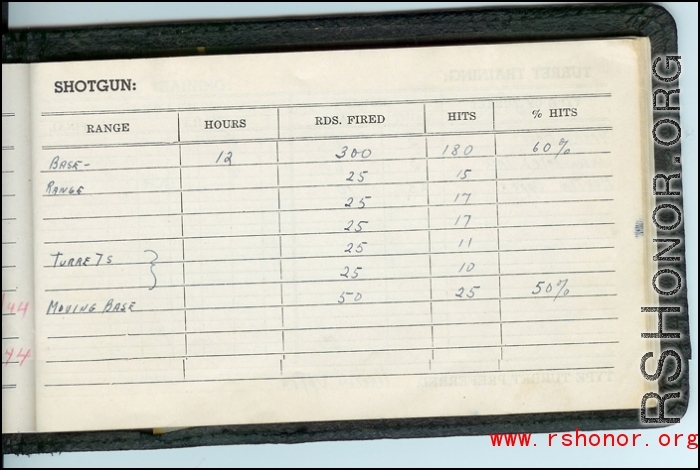 SHOTGUN:
RANGE HOURS RDS. FIRED HITS % HITS
BASE- 12 300 180 60%
RANGE 25 15
25 17
25 17
TURRETS 25 11
25 10
MOVING BASE 50 25 50%
44
44
RSHONOR.ORG
www.rshonor.org